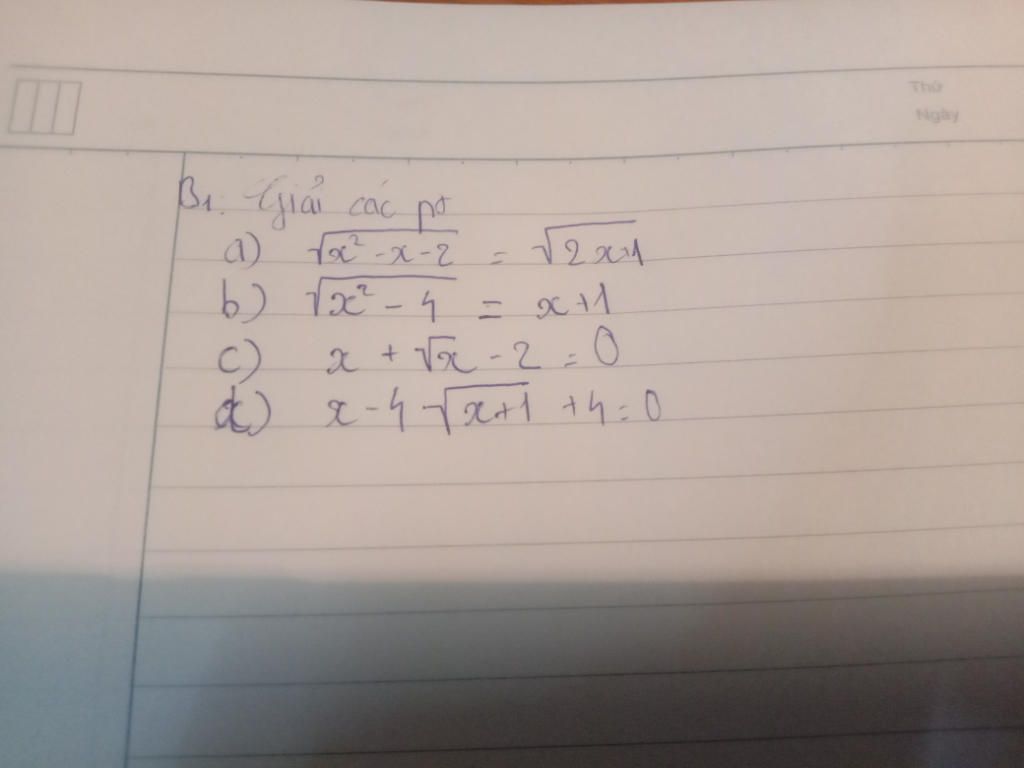 Thứ
Ngày
B1: Giải các pt
a) √(x² - x - 2) = √(2x+1)
b) √(x² - 4) = x+1
c) x + √x - 2 = 0
d) x - 4 √(x+1) + 4 = 0